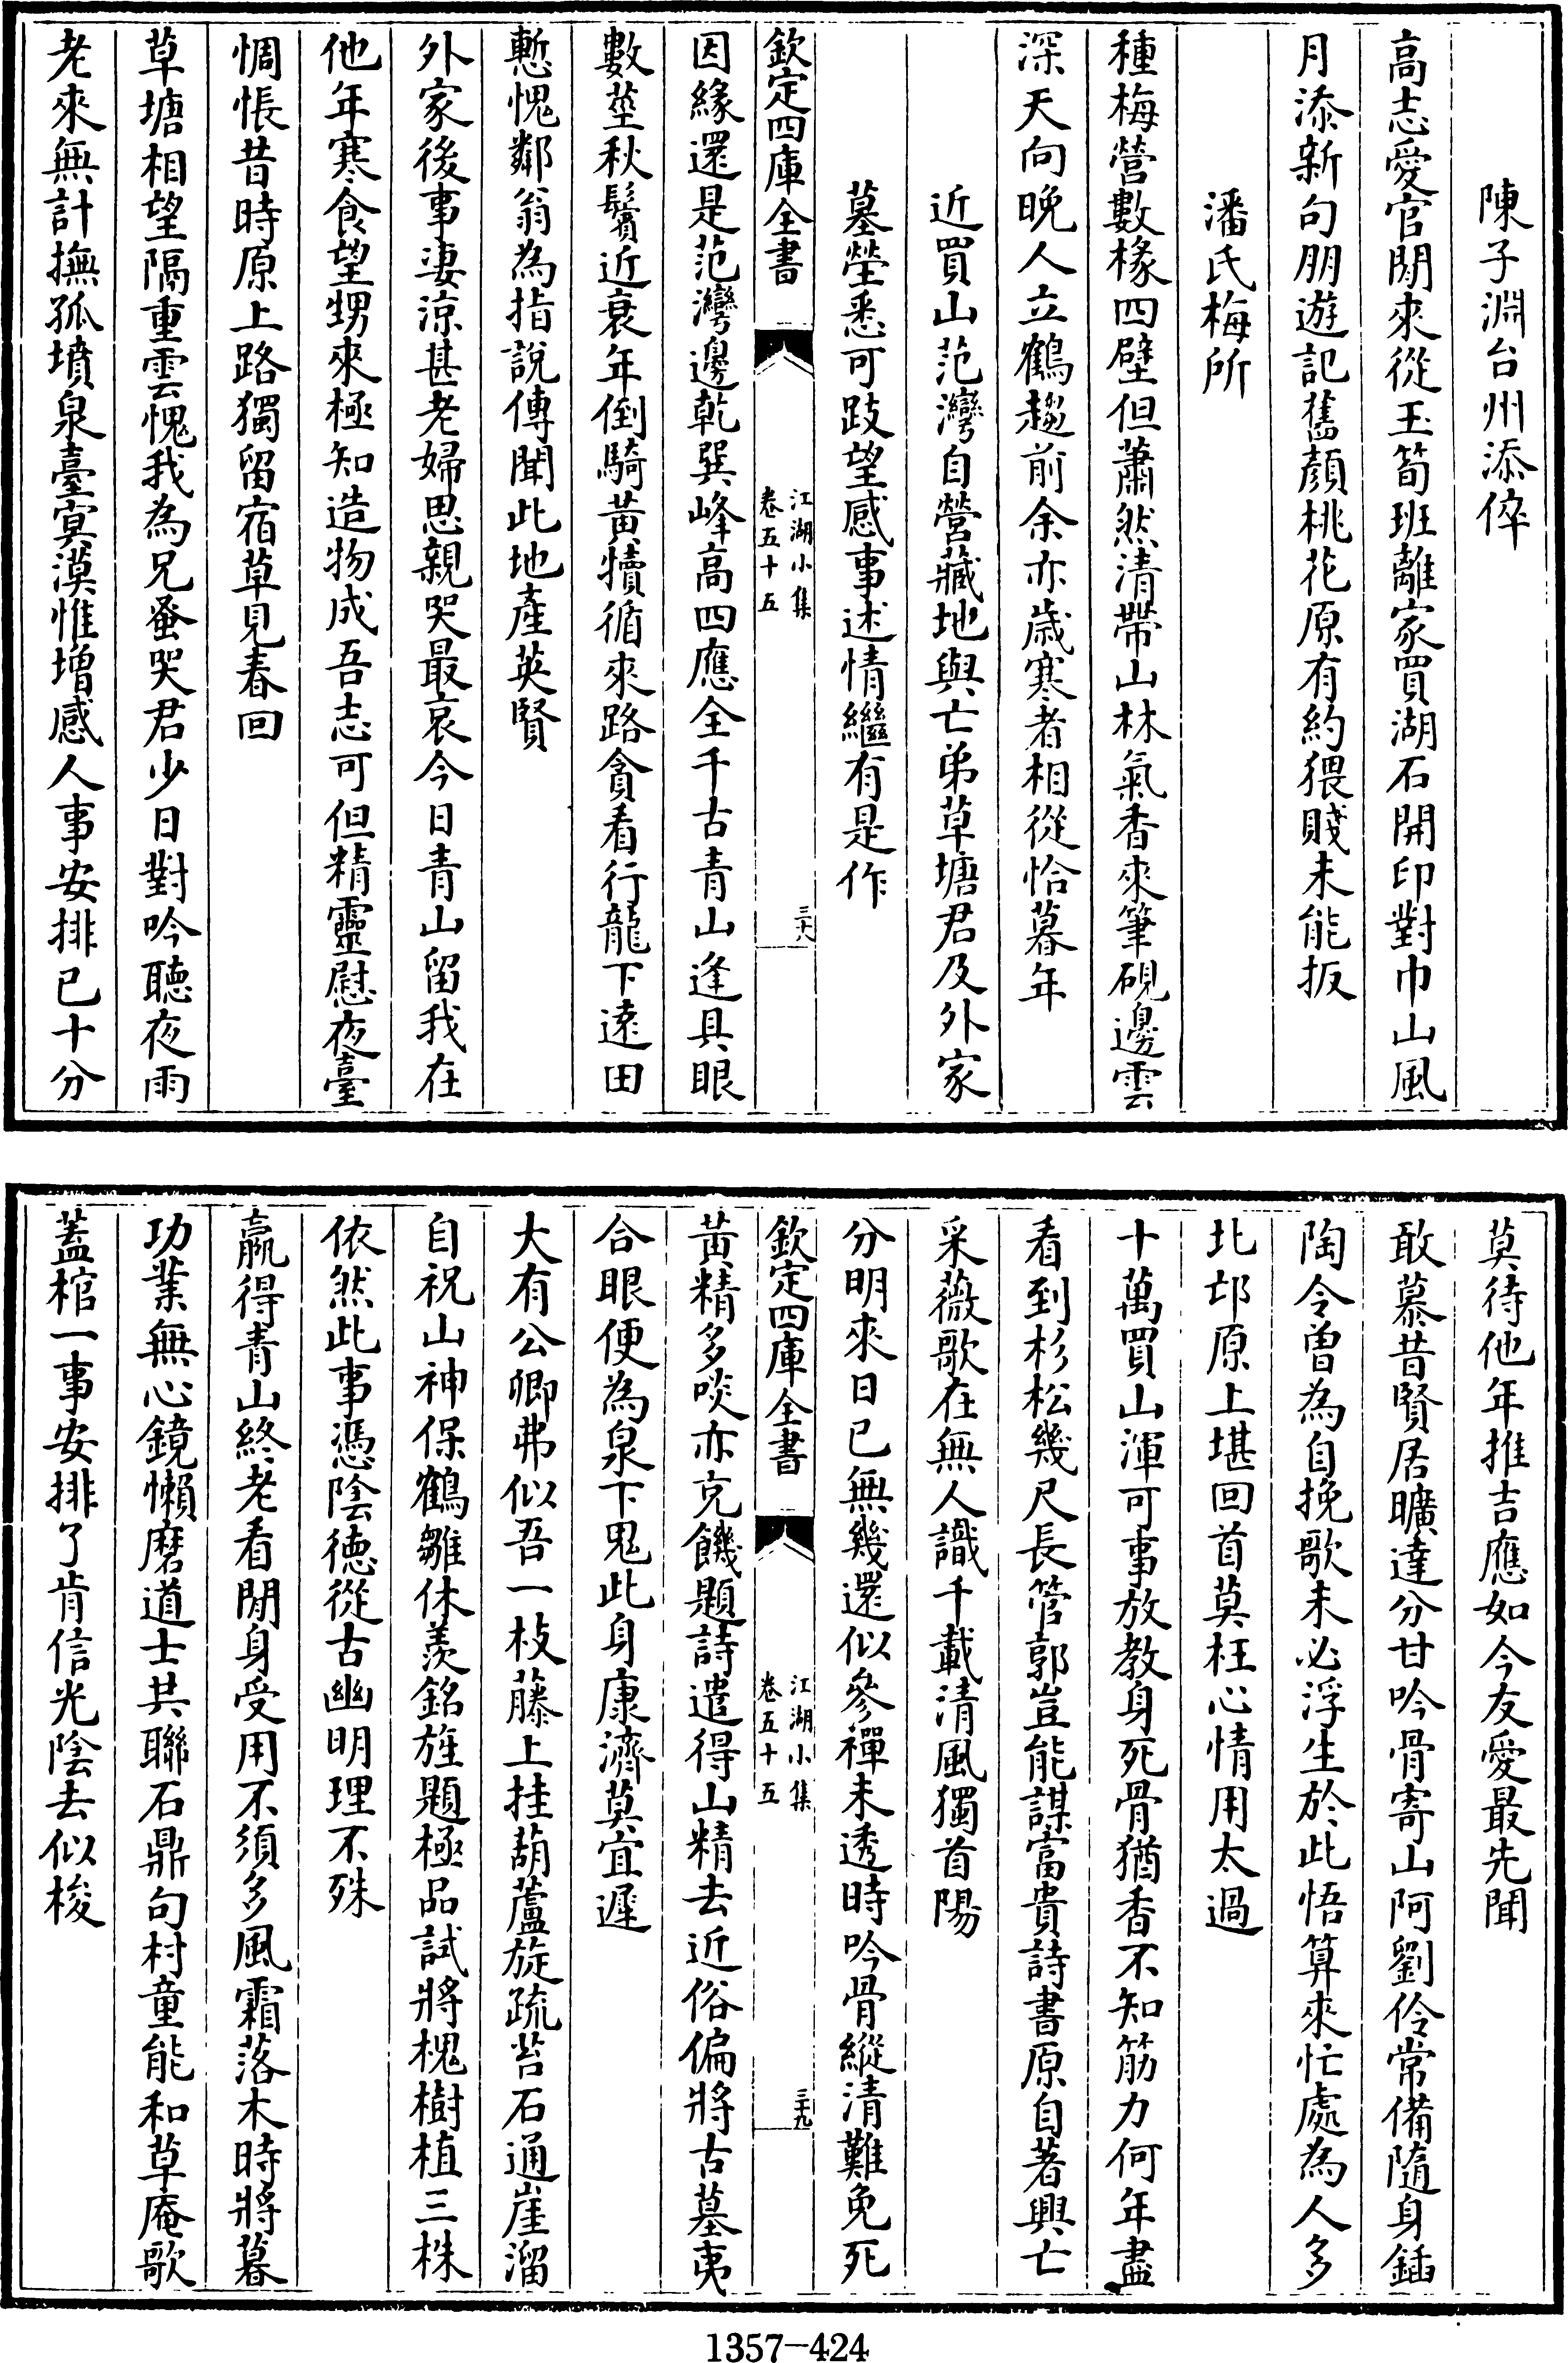 陳子淵台州添倅
高志愛官閒來從玉筍班離家買湖石開印對巾山風
月添新句朋遊記舊顏桃花原有約猥賤未能扳
潘氏梅所
種梅營數椽四壁但蕭然清帶山林氣香來筆硯邊雲
深天向晚人立鶴趨前余亦歲寒者相從恰暮年
近買山范灣自營藏地與亡弟草塘君及外家
墓塋悉可跂望感事述情繼有是作
欽定四庫全書
江湖小集
卷五十五
三十八
因緣還是范灣邊乾巽峰高四應全千古青山逢具眼
數莖秋鬢近衰年倒騎黃犢循來路貪看行龍下遠田
慙愧鄰翁為指說傳聞此地產英賢
外家後事凄涼甚老婦思親哭最哀今日青山留我在
他年寒食望甥來極知造物成吾志可但精靈慰夜臺
惆悵昔時原上路獨留宿草見春回
草塘相望隔重雲愧我為兄蚤哭君少日對吟聽夜雨
老來無計撫孤墳泉臺寞漠惟增感人事安排已十分
莫待他年推吉應如今友愛最先聞
敢慕昔賢居曠達分甘吟骨寄山阿劉伶常備隨身鍤
陶令曾為自挽歌未必浮生於此悟算來忙處為人多
北邙原上堪回首莫枉心情用太過
十萬買山渾可事放教身死骨猶香不知筋力何年盡
看到杉松幾尺長管郭豈能謀富貴詩書原自著興亡
采薇歌在無人識千載清風獨首陽
分明來日已無幾還似參禪未透時吟骨縱清難免死
欽定四庫全書
江湖小集
卷五十五
三十九
黃精多啖亦克饑題詩遣得山精去近俗偏將古墓夷
合眼便為泉下鬼此身康濟莫宜遲
大有公卿弗似吾一枝藤上挂葫蘆旋疏苔石通崖溜
自祝山神保鶴雛休羨銘旌題極品試將槐樹植三株
依然此事憑陰徳從古幽明理不殊
贏得青山終老看閒身受用不須多風霜落木時將暮
功業無心鏡懶磨道士共聯石鼎句村童能和草庵歌
蓋棺一事安排了肯信光陰去似梭
1357-424